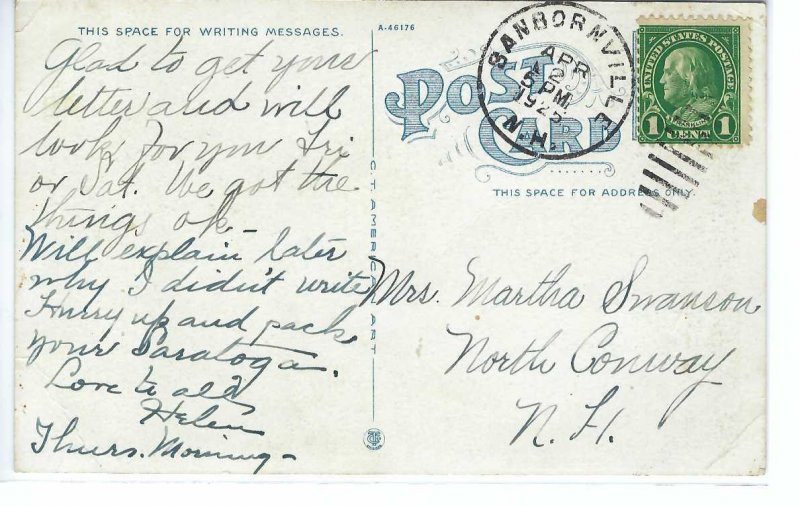 THIS SPACE FOR WRITING MESSAGES.
A-46176
Glad to get your
letter and will
look for you Fri
or Sat. We got the
things ok-
Will explain later
why I didn't write
Hurry up and pack
your Saratoga.
Love to all
Helen
Thurs. Morning-
C.T. AMERICAN ART
POST CARD
THIS SPACE FOR ADDRESS ONLY.
SANBORNVILLE
APR
2
5 PM
1925
N.H.
UNITED STATES POSTAGE
FRANKLIN
1 CENT 1
Mrs. Martha Swanson
North Conway
N.H.